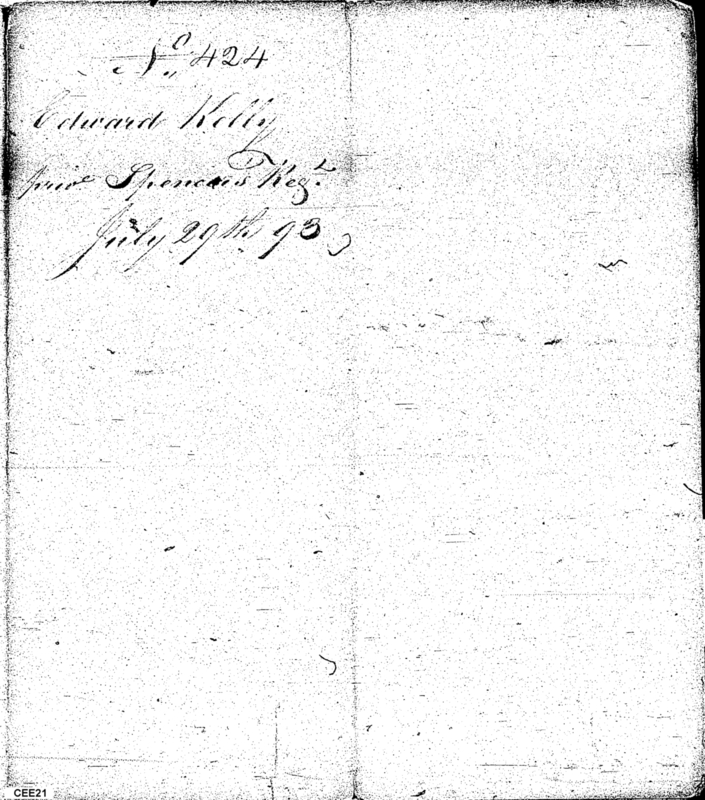 No. 424
Edward Kelly
prive Spencers Regt
July 29th 93
CEE21